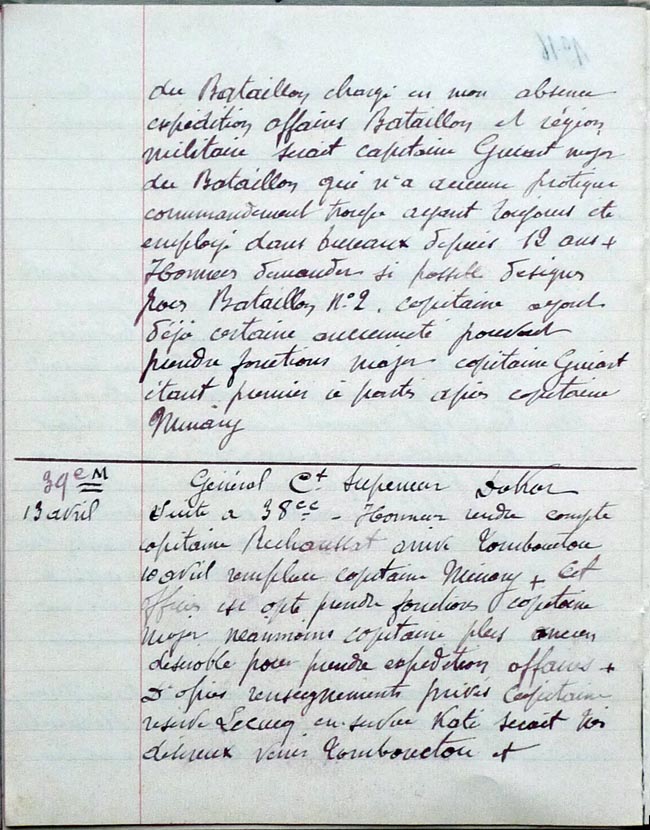 du Bataillon chargé en mon absence
expédition affaires Bataillon et région
militaire serait capitaine Guiart major
du Bataillon qui n'a aucune pratique
commandement troupe ayant toujours été
employé dans bureaux depuis 12 ans +
Honneur demander si possible désigner
pour Bataillon N°2. capitaine ayant
déjà certaine ancienneté pouvant
prendre fonctions major capitaine Guiart
étant premier à partir après capitaine
Minary
39e M
13 avril
Général Ct Supérieur Dakar
Suite à 38 cc - Honneur rendre compte
capitaine Rechaussat arrivé Tombouctou
10 avril remplace capitaine Minary + Cet
officier est apte prendre fonctions capitaine
major néanmoins capitaine plus ancien
désirable pour prendre expédition affaires +
D'après renseignements privés capitaine
réserve Lecucq en service Kati serait
désireux venir Tombouctou et